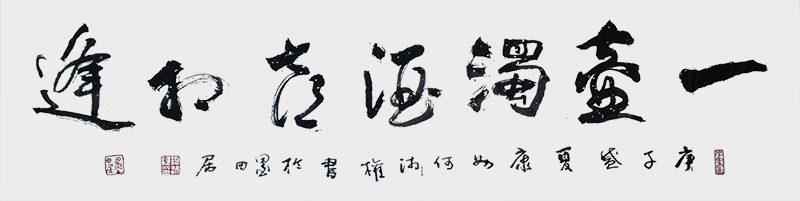 一壶濁酒喜相逢
庚子盛夏康如何沛權書於墨田居